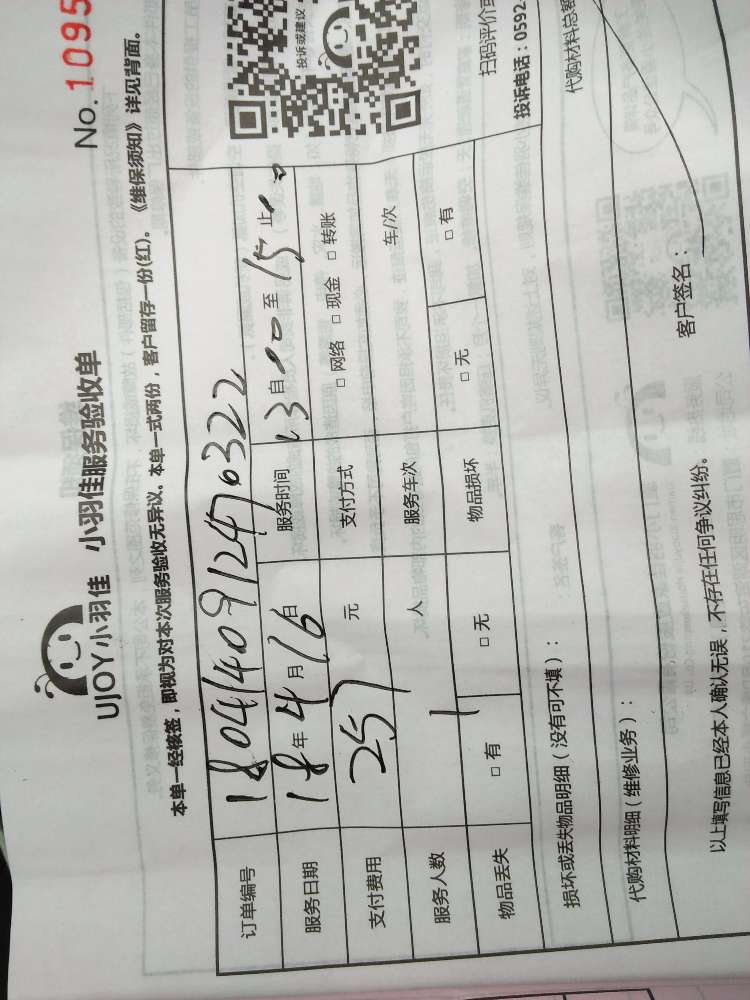 No. 1095
UJOY小羽佳 小羽佳服务验收单
本单一经核签，即视为对本次服务验收无异议。本单一式两份，客户留存一份(红)。《维保须知》详见背面。
订单编号 1804140912476322
服务日期 18年4月16日 服务时间 13自00至15止00
支付费用 257元 支付方式 □ 网络 □ 现金 □ 转账
服务人数 1人 服务车次 车/次
物品丢失 □ 有 □ 无 物品损坏 □ 无 □ 有
投诉或建议
扫码评价或
投诉电话：0592-
损坏或丢失物品明细（没有可不填）：
代购材料明细（维修业务）：
代购材料总额
以上填写信息已经本人确认无误，不存在任何争议纠纷。
客户签名：